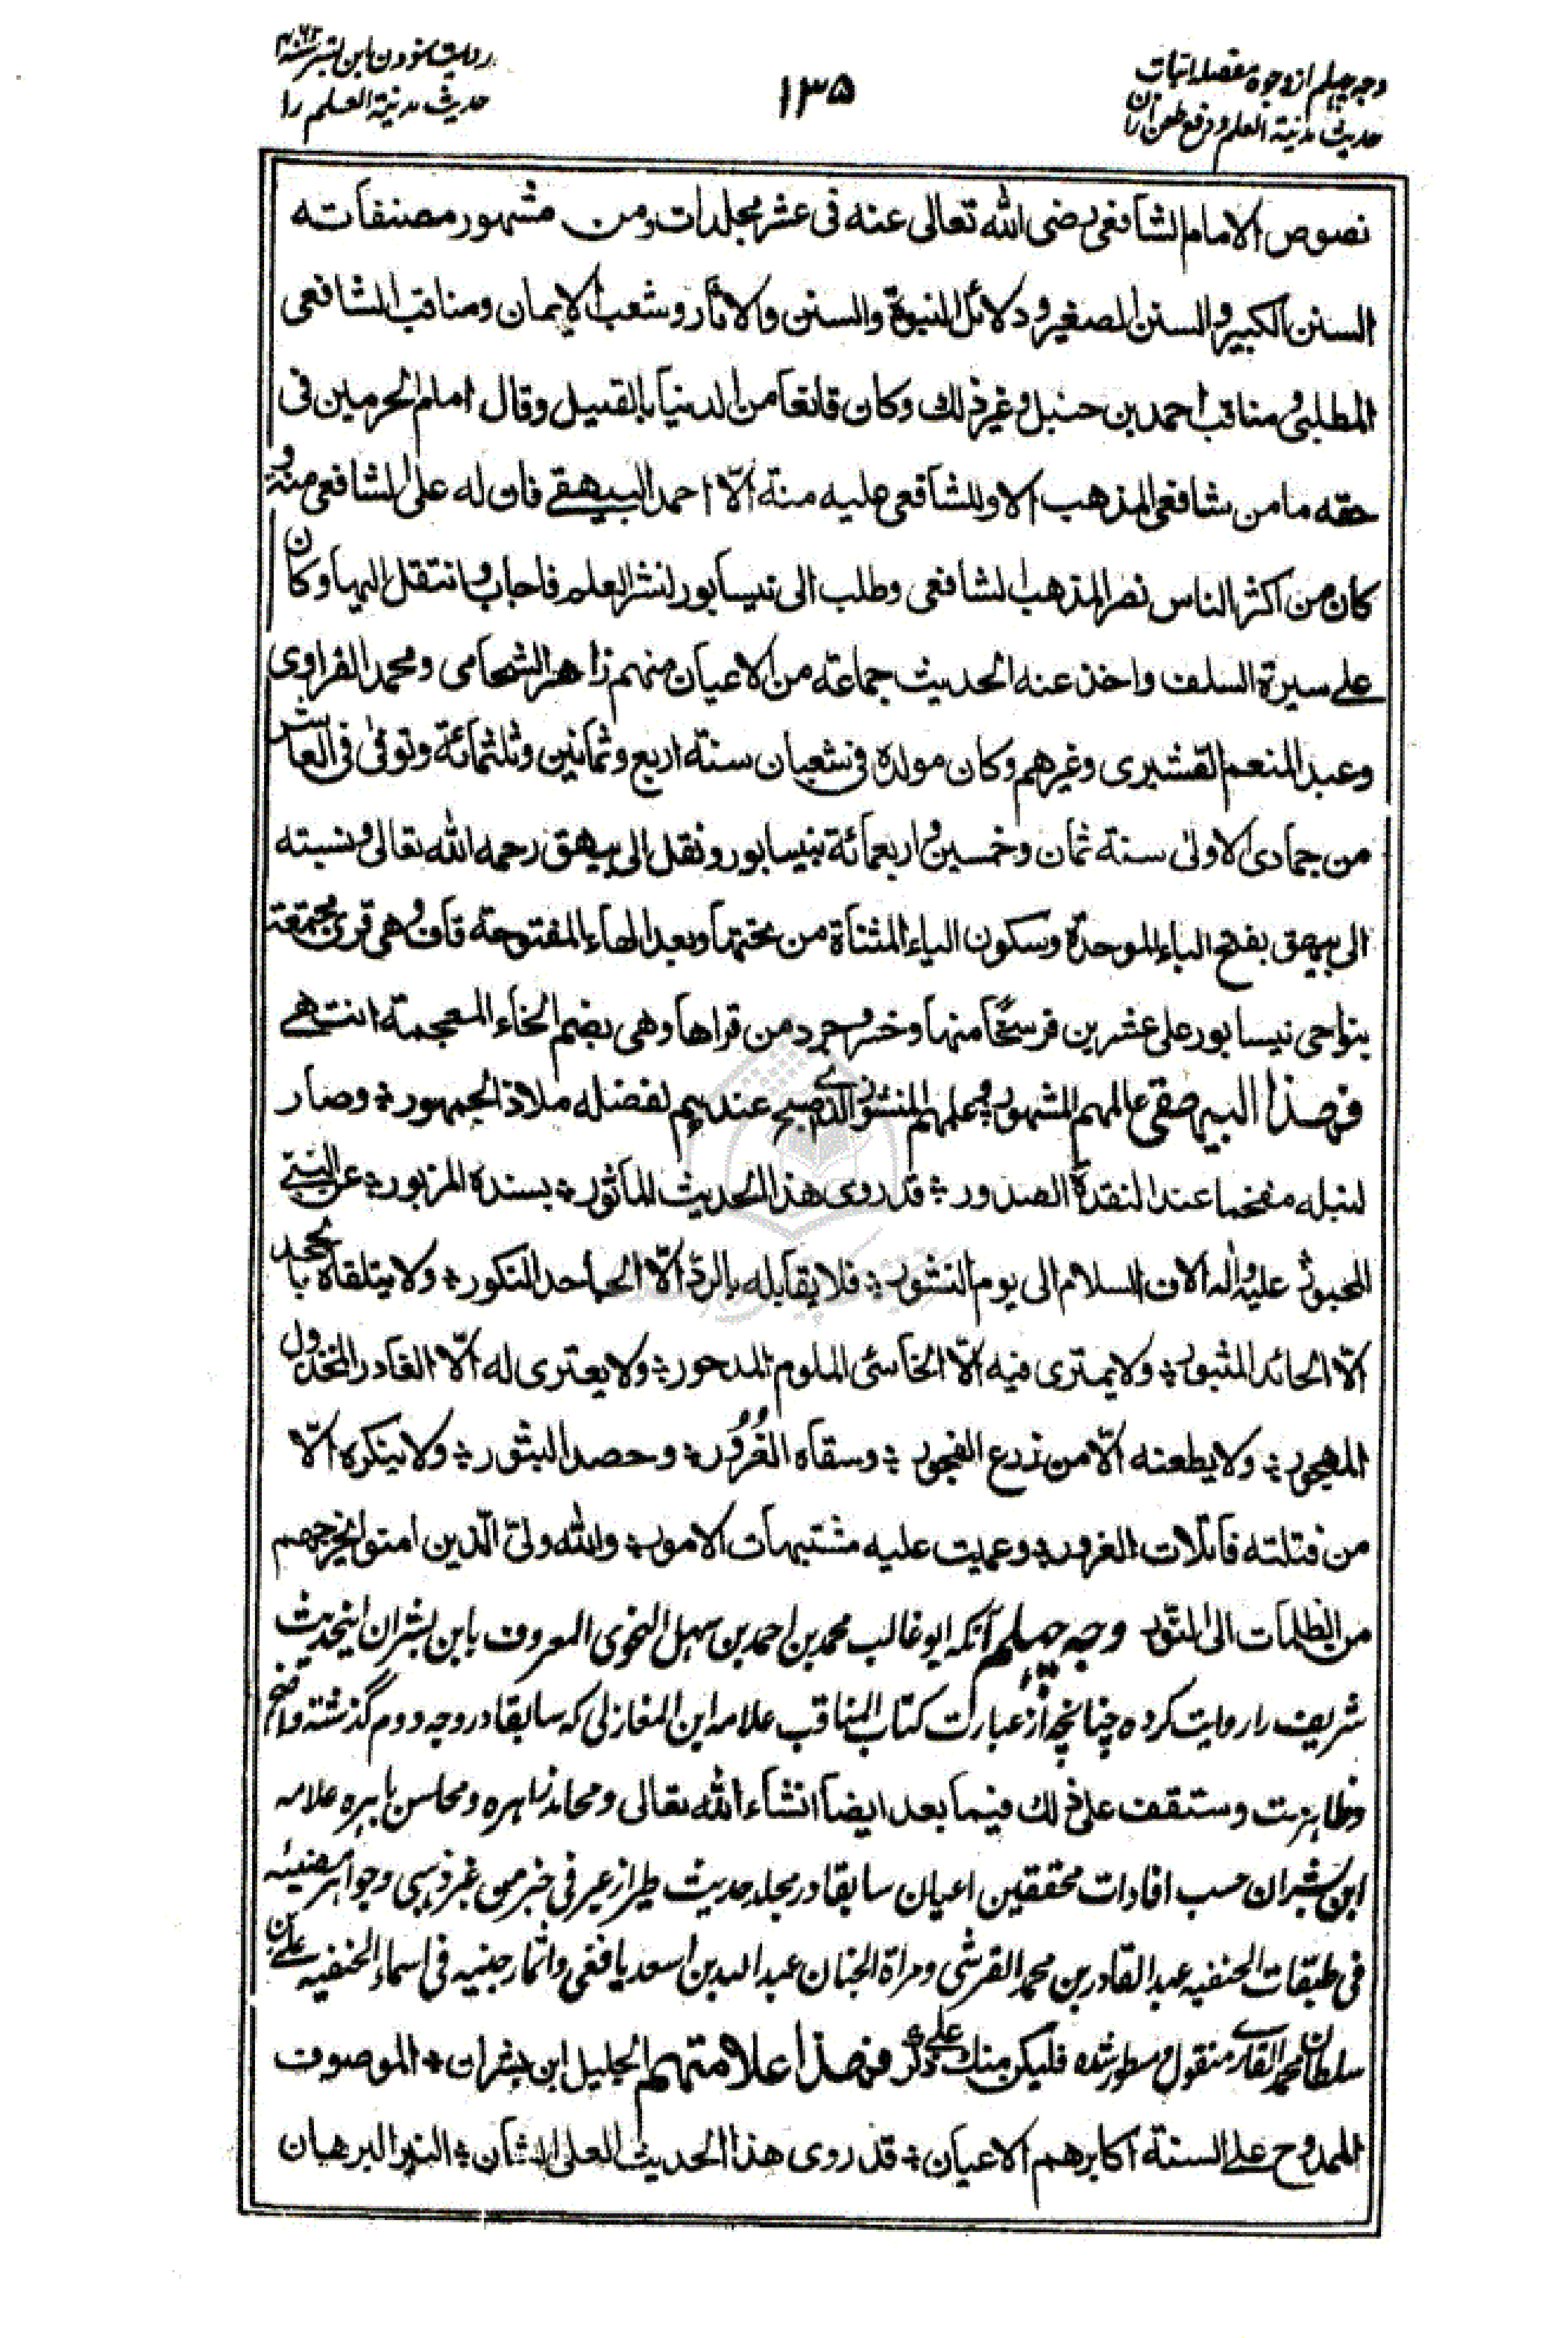 وجه چهلم از وجوه مفصله اثبات
حدیث مدینة العلم و دفع طعن ازان
۱۳۵
روایت نمودن ابن بشران سنه ۴۶۲
حدیث مدینة العلم را
نصوص الامام الشافعی رضی الله تعالی عنه فی عشر مجلدات ومن مشهور مصنفاته
السنن الکبیر والسنن الصغیر ودلائل النبوة والسنن والاثار وشعب الایمان ومناقب الشافعی
المطلبی ومناقب احمد بن حنبل وغیر ذلك وکان قانعا من الدنیا بالقلیل وقال امام الحرمین فی
حقه ما من شافعی المذهب الا وللشافعی علیه منة الّا احمد البیهقی فان له علی الشافعی منة و
کان من اکثر الناس نصرا لمذهب الشافعی وطلب الی نیسابور لنشر العلم فاجاب وانتقل الیها وکان
علی سیرة السلف واخذ عنه الحدیث جماعة من الاعیان منهم زاهر الشحامی ومحمد الفراوی
وعبد المنعم القشیری وغیرهم وکان مولده فی شعبان سنة اربع وثمانین وثلثمائة وتوفی فی العاشر
من جمادی الاولی سنة ثمان وخمسین واربعمائة بنیسابور ونقل الی بیهق رحمه الله تعالی ونسبته
الی بیهق بفتح الباء الموحدة وسکون الیاء المثناة من تحتها وبعد الهاء المفتوحة قاف وهی قری مجتمعة
بنواحی نیسابور علی عشرین فرسخا منها وخسروجرد من قراها وهی بضم الخاء المعجمة انتهی
فهذا البیهقی عالمهم المشهور ومعلمهم المنشور الذی اصبح عندهم لفضله ملاذ الجمهور؛ وصار
لنبله مفخما عند النقدة الصدور؛ قد روی هذا الحدیث المأثور؛ بسنده المزبور؛ عن النبی
المحبور علیه واله الاف السلام الی یوم النشور؛ فلا یقابله بالردّ الّا الجاحد النکور؛ ولا یتلقاه بالجحد
الّا الحائد المثبور؛ ولا یمتری فیه الّا الخاسئ الملوم المدحور؛ ولا یعتری له الّا الغادر المخذول
المهجور؛ ولا یطعنه الّا من زرع الفجور؛ وسقاه الغُرُور؛ وحصد الثبور؛ ولا ینکره الّا
من قتلته قاتلات الغرور؛ وعمیت علیه مشتبهات الامور؛ والله ولیّ الّذین امنوا یخرجهم
من الظلمات الی النّور وجه چهلم آنکه ابو غالب محمد بن احمد بن سهل النحوی المعروف بابن بشران اینحدیث
شریف را روایت کرده چنانچه از عبارت کتاب المناقب علامه ابن المغازلی که سابقا در وجه دوم گذشته واضح
وظاهرست وستقف علی ذلك فیما بعد ایضا انشاء الله تعالی ومحامد زاهره ومحاسن باهره علامه
ابن بشران حسب افادات محققین اعیان سابقا در مجلد حدیث طیر از عبر فی خبر من غبر ذهبی وجواهر مضیئه
فی طبقات الحنفیه عبد القادر بن محمد القرشی ومرآة الجنان عبد الله بن اسعد یافعی واثمار جنیه فی اسماء الحنفیه علی بن
سلطان محمد القاری منقول ومسطور شده فلیکن منك علی ذکر فهذا علامتهم الجلیل ابن بشران؛ الموصوف
الممدوح علی السنة اکابرهم الاعیان؛ قد روی هذا الحدیث العلی الشان؛ النیر البرهان